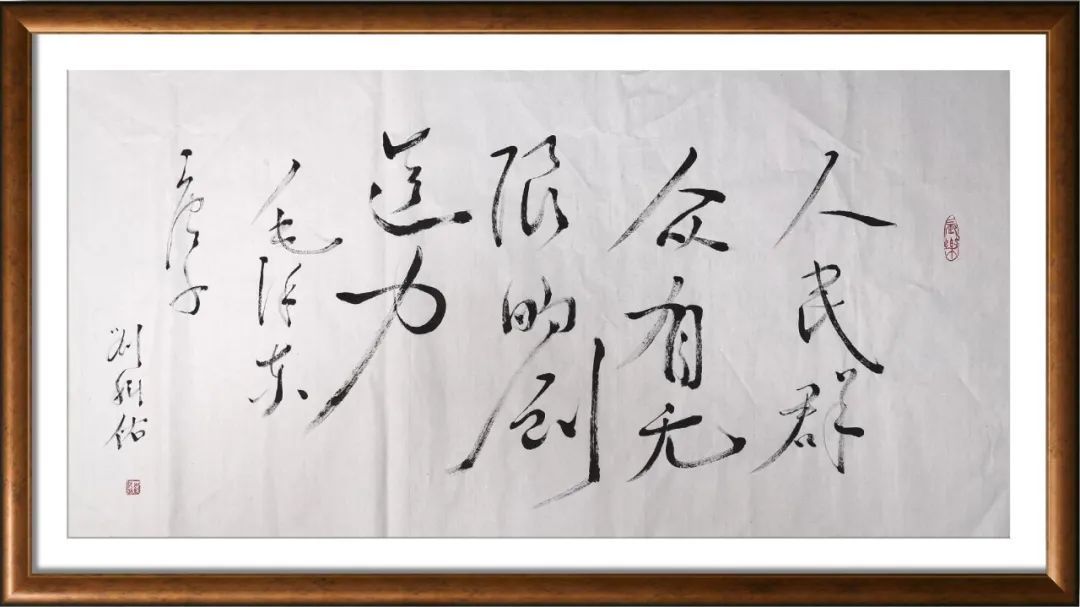 人民群
众有无
限的创
造力
毛泽东
庚子
刘佑